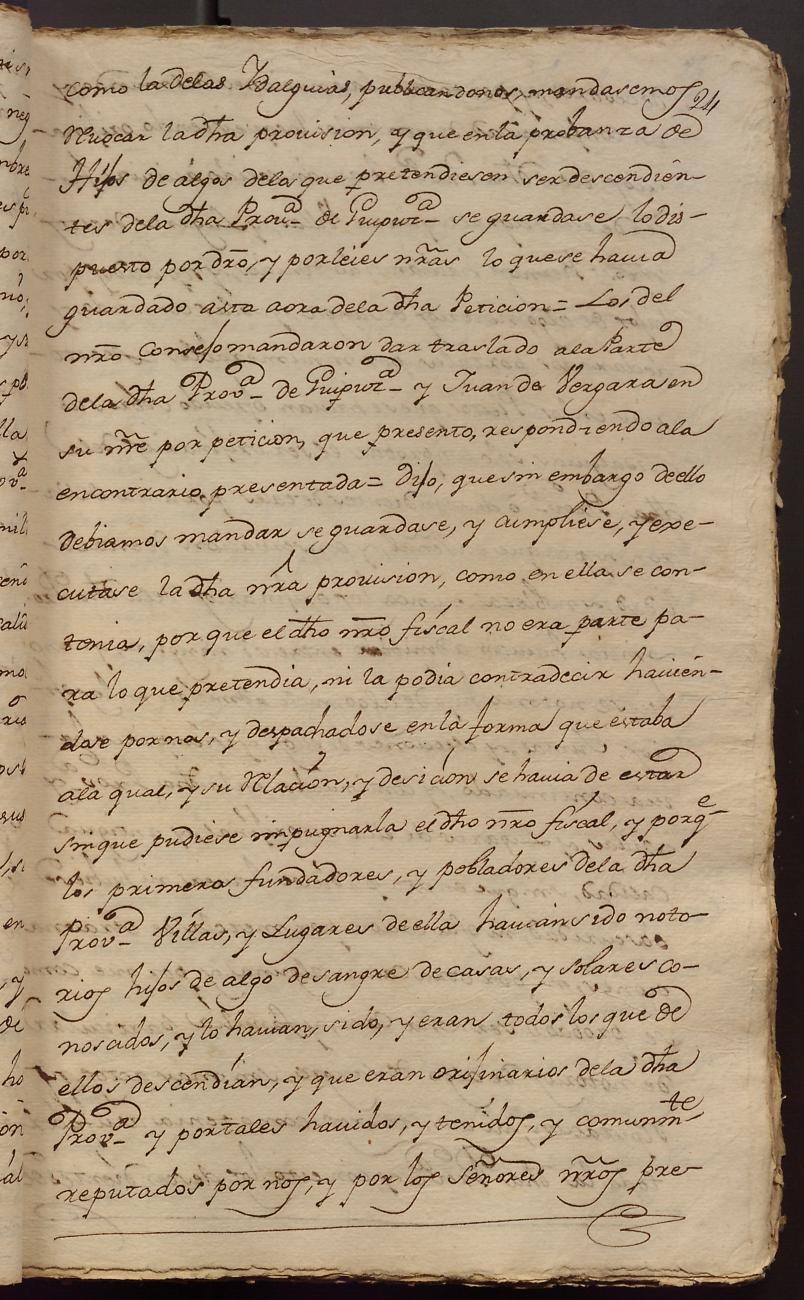 como la delas Idalguias, publicandonos mandasemos 24
Revocar la dha provision, y que en la probanza de
Hijos de algos delos que pretendiesen ser descendien-
tes dela dha Prova de Guipuzca se guardase lo dis-
puesto por dro, y por leies nras lo que se havia
guardado asta aora dela dha Peticion = Los del
nro Consejo mandaron dar traslado ala Parte
dela dha Prova de Guipuzca y Juan de Vergara en
su nre por peticion, que presento, respondiendo ala
en contrario presentada = Dijo, que sin embargo de ello
debiamos mandar se guardase, y cumpliese, y exe-
cutase la dha nra provision, como en ella se con-
tenia, por que el dho nro fiscal no era parte pa-
ra lo que pretendia, ni la podia contradecir havien-
dose por nos, y despachadose en la forma que estaba
ala qual, y su Relacion, y desicion se havia de estar
sin que pudiese impugnarla el dho nro fiscal, y porqe
los primeros fundadores, y pobladores dela dha
Prova Villas, y Lugares de ella havian sido noto-
rios hijos de algo de sangre de casas, y solares co-
noscidos, y lo havian sido, y eran todos los que de
ellos descendian, y que eran orijinarios dela dha
Prova y por tales havidos, y tenidos, y comunmte
reputados por nos, y por los Señores nros pre-